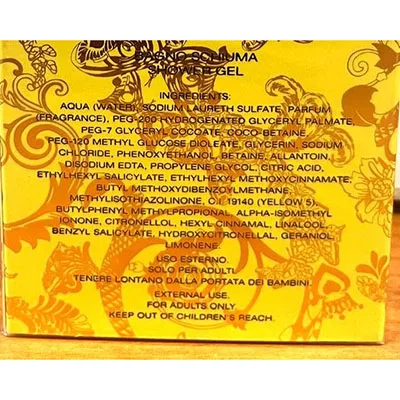 BAGNO SCHIUMA
SHOWER GEL
INGREDIENTS:
AQUA (WATER), SODIUM LAURETH SULFATE, PARFUM
(FRAGRANCE), PEG-200 HYDROGENATED GLYCERYL PALMATE,
PEG-7 GLYCERYL COCOATE, COCO-BETAINE,
PEG-120 METHYL GLUCOSE DIOLEATE, GLYCERIN, SODIUM
CHLORIDE, PHENOXYETHANOL, BETAINE, ALLANTOIN,
DISODIUM EDTA, PROPYLENE GLYCOL, CITRIC ACID,
ETHYLHEXYL SALICYLATE, ETHYLHEXYL METHOXYCINNAMATE,
BUTYL METHOXYDIBENZOYLMETHANE,
METHYLISOTHIAZOLINONE, C.I. 19140 (YELLOW 5),
BUTYLPHENYL METHYLPROPIONAL, ALPHA-ISOMETHYL
IONONE, CITRONELLOL, HEXYL CINNAMAL, LINALOOL,
BENZYL SALICYLATE, HYDROXYCITRONELLAL, GERANIOL,
LIMONENE.
USO ESTERNO.
SOLO PER ADULTI.
TENERE LONTANO DALLA PORTATA DEI BAMBINI.
EXTERNAL USE.
FOR ADULTS ONLY
KEEP OUT OF CHILDREN'S REACH.